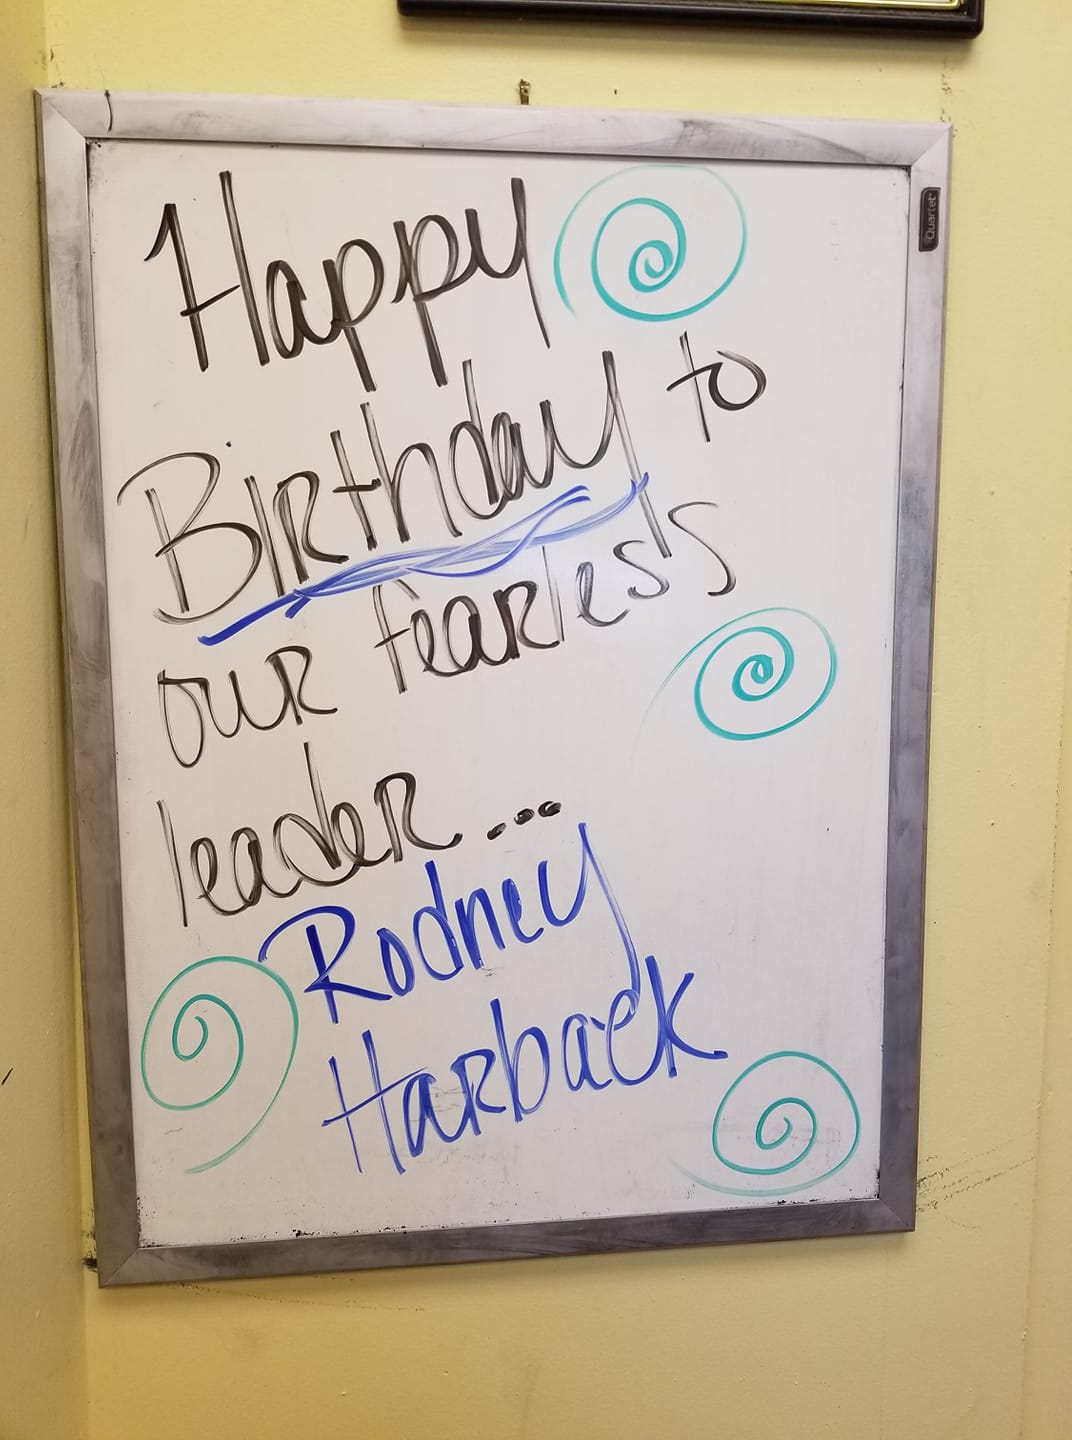 Happy
Birthday to
our fearless
leader....
Rodney
Harback
Quartet